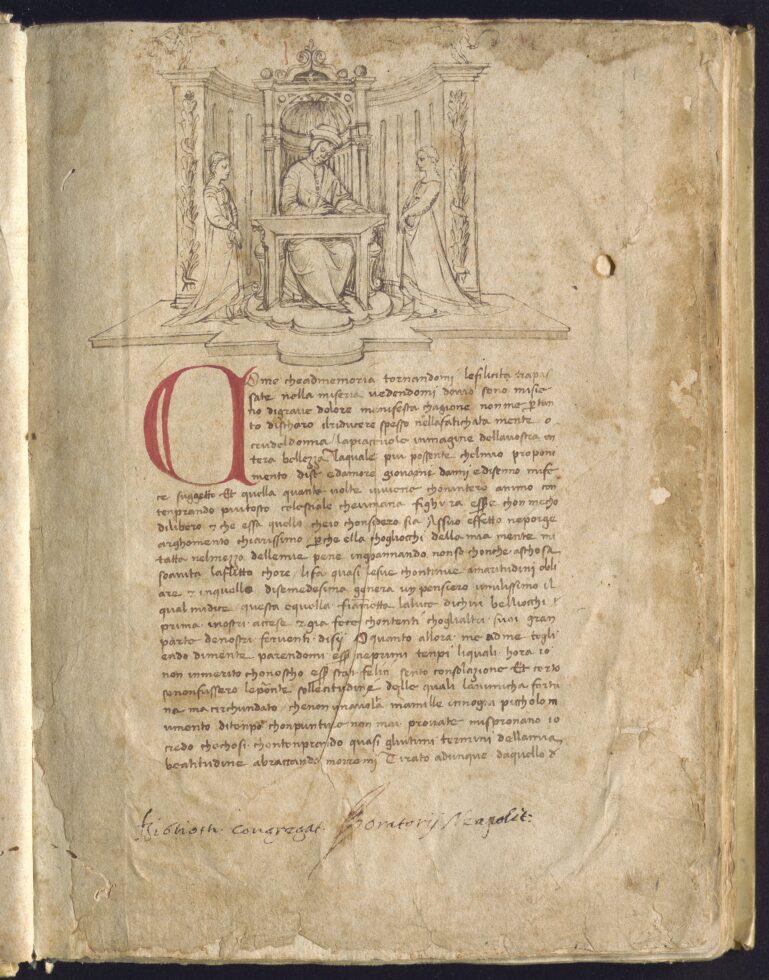 Come cheadmemoria tornandomi lefilicita trapas
sate nella miseria vedendomi dovio sono misie
no digrave dolore manifesta chagione nonme ptan
to discharo ilriducere spesso nellafatichata mente o
crudeldonna lapiacevole inmagine dellavostra in
tera bellezza laquale piu possente chelmio proponi
mento dise edamore giovane danni edisenno mife
ce suggetto Et quella quante volte miviene chonintero animo con
tenprando piutosto celestiale cheumana fighura esse chon mecho
dilibero z che essa quello cheio chonsidero sia Assuo effetto neporge
arghomento chiarissimo pche ella chogliochi della mia mente mi
ratta nelmezo dellemie pene inghannando nonso chonche aschosa
soavita laflitto chore lifa quasi lesue chontinue amaritudini obli
are z inquello disemedesima genera un pensiero umilissimo il
qual midice questa equella fiammetta laluce dichui belliochi
prima inostri accese z gia fece chontenti choglialtri suoi gran
parte denostri ferventi disij O quanto allora me ad me togli
endo dimente parendomi ess neprimi tenpi liquali hora io
non inmerito chonoscho ess stati felici sento consolazione Et certo
senonfussero lepronte sollecitudine delle quali lanimicha fortu
na ma circhundato chenon unavolta mamille innogni picholo m
vimento ditenpo chonpunture non mai provate mispronano io
credo chechosi chontenprando quasi gliultimi termini dellamia
beatitudine abracciando morremi Tirato adunque daquello d
Biblioth. Congregat. Oratorij Neapolit: